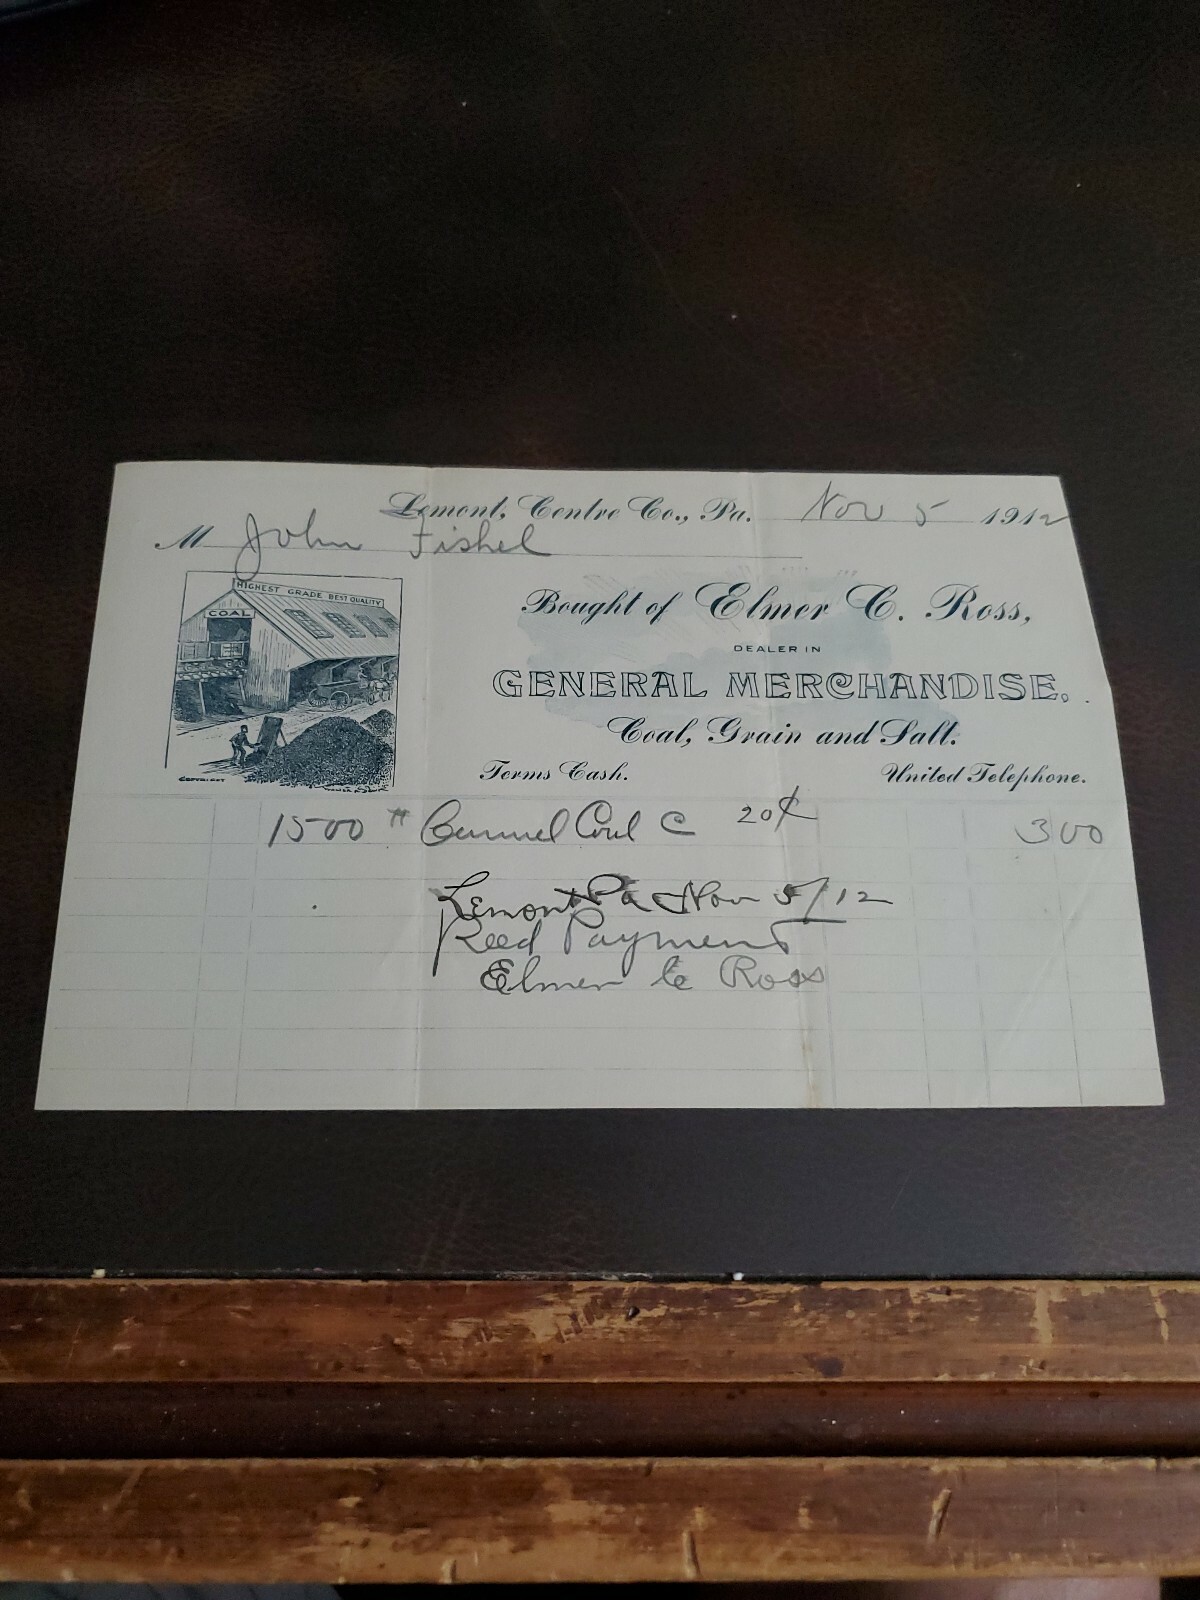 Lemont, Centre Co., Pa. Nov 5 1912
M John Fishel
HIGHEST GRADE BEST QUALITY
COAL
COPYRIGHT
Bought of Elmer C. Ross,
DEALER IN
GENERAL MERCHANDISE.
Coal, Grain and Salt.
Terms Cash. United Telephone.
1500 # Cannel Coal C 20¢ 3 00
Lemont Pa Nov 5/12
Recd Payment
Elmer C Ross